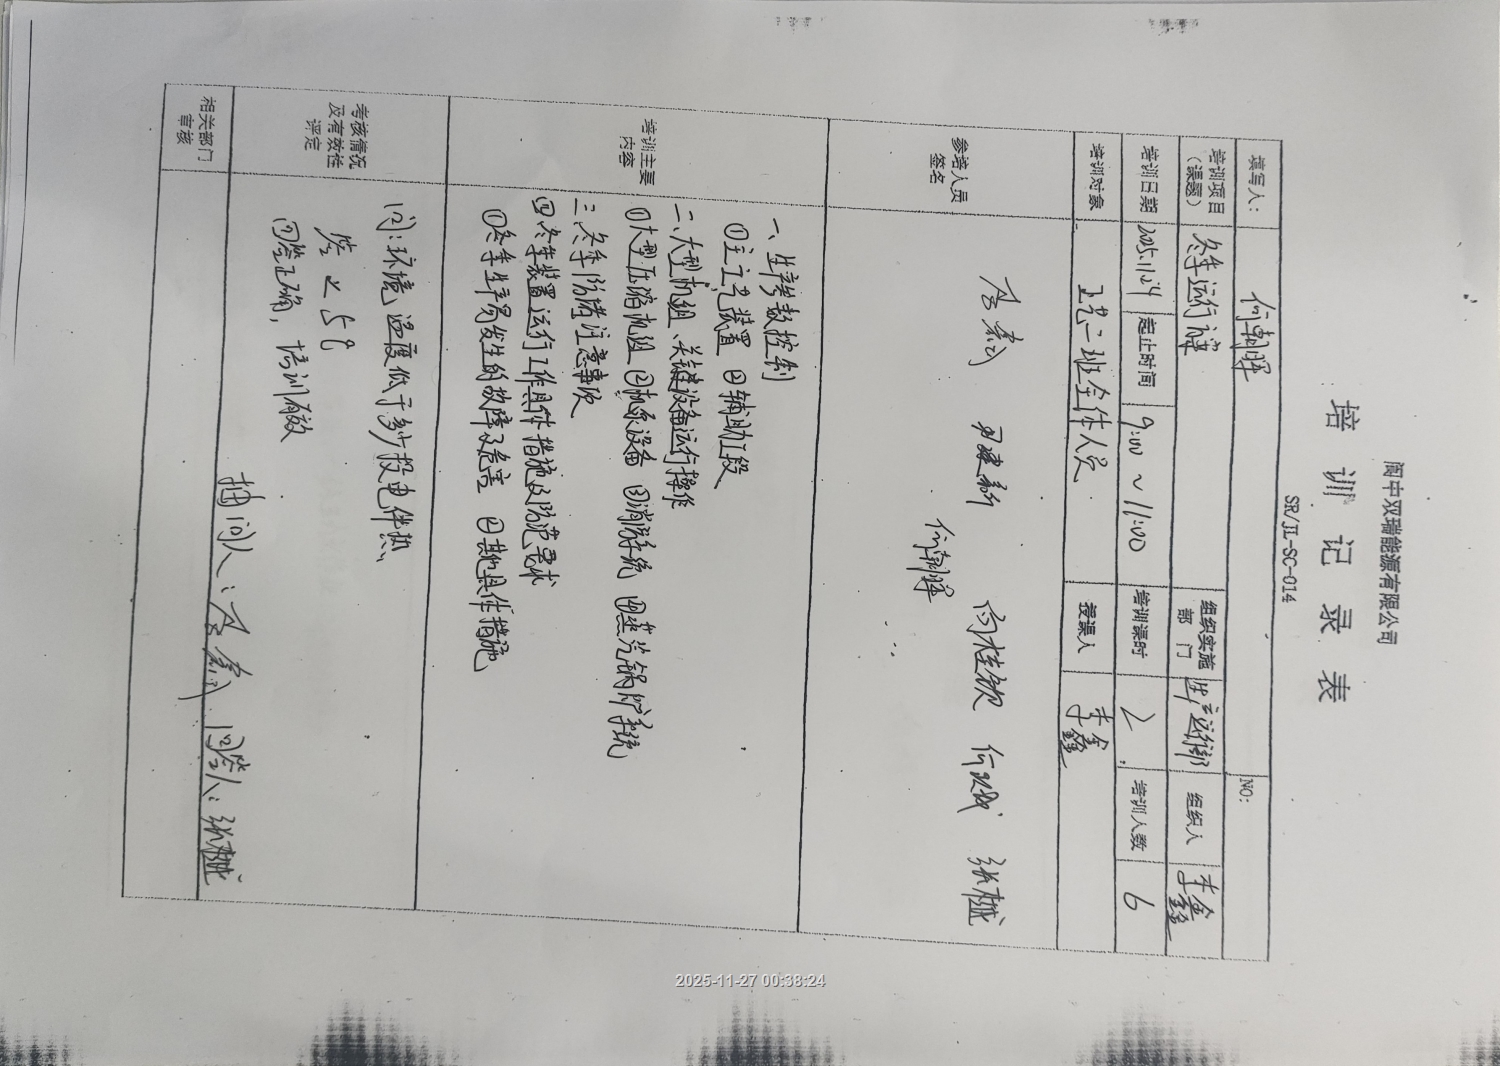 阆中双瑞能源有限公司
培训记录表
SR/JL-SC-014
填写人： 何朝晖 NO:
培训项目（课题） 冬季运行讲课 组织实施部门 生产运行部 组织人 李鑫
培训日期 2025.11.24 起止时间 9:00 ~ 11:00 培训课时 2 培训人数 6
培训对象 工艺二班全体人员 授课人 李鑫
参培人员签名
何朝晖
培训主要内容
一、生产参数控制
①主工艺装置 ②辅助工段
二、大型机组、关键设备运行操作
①大型压缩机组 ②机泵设备 ③消防系统 ④蒸汽锅炉系统
三、冬季防堵注意事项
四、冬季装置运行工作具体措施及防范要求
①冬季生产易发生的故障及危害 ②其他具体措施
考核情况及有效性评定
问：环境温度低于多少投电伴热
答 ≤5℃
回答正确，培训有效
抽问人： 回答人：张
相关部门审核
2025-11-27 00:38:24